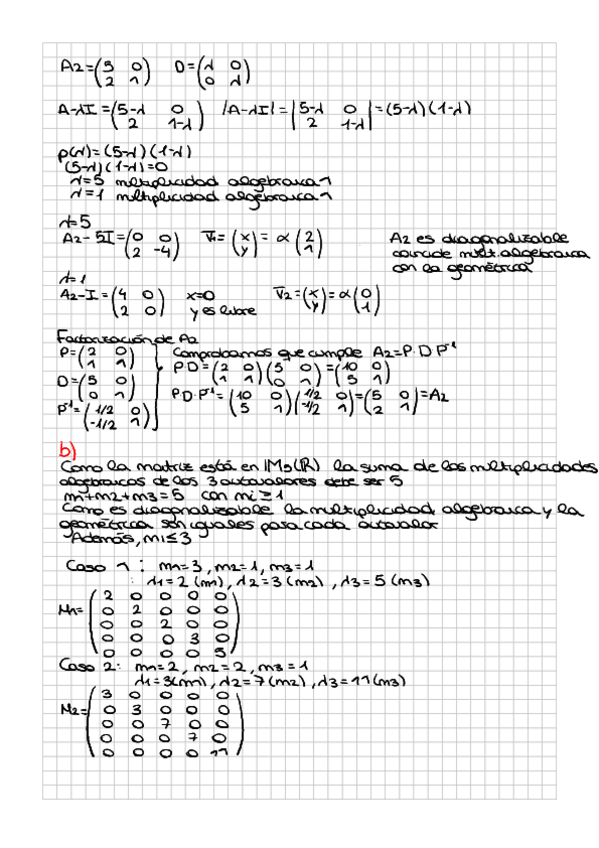 A2=(5 0 / 2 1) D=(λ 0 / 0 λ)
A-λI=(5-λ 0 / 2 1-λ) |A-λI|=|5-λ 0 / 2 1-λ|=(5-λ)(1-λ)
p(λ)=(5-λ)(1-λ)
(5-λ)(1-λ)=0
λ=5 multiplicidad algebraica 1
λ=1 multiplicidad algebraica 1
λ=5
A2-5I=(0 0 / 2 -4) V1=(x / y)=α(2 / 1) A2 es diagonalizable
coincide mult.algebraica
con la geométrica
λ=1
A2-I=(4 0 / 2 0) x=0 V2=(x / y)=α(0 / 1)
y es libre
Factorización de A2
P=(2 0 / 1 1) Comprobamos que cumple A2=P·D·P⁻¹
P·D=(2 0 / 1 1)(5 0 / 0 1)=(10 0 / 5 1)
D=(5 0 / 0 1)
P⁻¹=(1/2 0 / -1/2 1) P·D·P⁻¹=(10 0 / 5 1)(1/2 0 / -1/2 1)=(5 0 / 2 1)=A2
b)
Como la matriz está en M5(R) la suma de las multiplicidades
algebraicas de los 3 autovalores debe ser 5
m1+m2+m3=5 con mi≥1
Como es diagonalizable la multiplicidad algebraica y la
geométrica son iguales para cada autovalor
Además, mi≤3
Caso 1: m1=3, m2=1, m3=1
: λ1=2 (m1), λ2=3 (m2), λ3=5 (m3)
M1=(2 0 0 0 0
0 2 0 0 0
0 0 2 0 0
0 0 0 3 0
0 0 0 0 5)
Caso 2: m1=2, m2=2, m3=1
λ1=3(m1), λ2=7(m2), λ3=11(m3)
M2=(3 0 0 0 0
0 3 0 0 0
0 0 7 0 0
0 0 0 7 0
0 0 0 0 11)